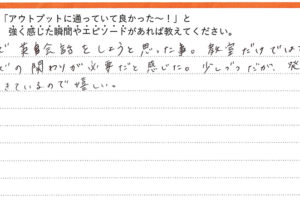 「アウトプットに通っていて良かった～！」と
強く感じた瞬間やエピソードがあれば教えてください。
で 英会話をしようと思った事。教室だけでは
どの関わりが必要だと感じた。少しづつだが、
きているので嬉しい。